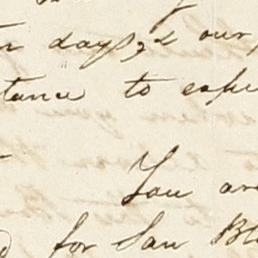 days, & our
tance to expe
You are
for San Bl